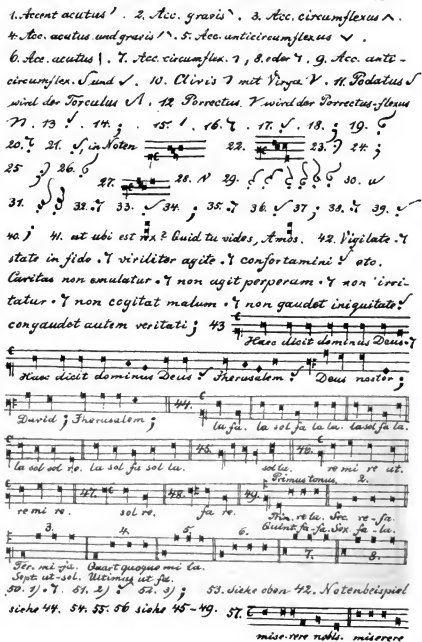 1. Accent acutus ′. 2. Acc. gravis ‵. 3. Acc. circumflexus ^.
4. Acc. acutus und gravis ′‵. 5. Acc. anticircumflexus ˅.
6. Acc. acutus |. 7. Acc. circumflex. 8. oder 9. Acc. anti-
circumflex. und 10. Clivis mit Virga 11. Podatus
wird der Torculus 12 Porrectus. wird der Porrectus-flexus
13 14. ; 15. 16. 17. 18. ; 19.
20. 21. in Noten 22. 23. 24. ;
25 26.
27. 28. 29. 30.
31. 32. 33. 34. ; 35. 36. 37 ; 38. 39.
40. ; 41. est ubi est rex? Quid tu vides, Amos. 42. Vigilate
state in fide viriliter agite confortamini etc.
Caritas non emulatur non agit perperam non irri-
tatur non cogitat malum non gaudet iniquitate
congaudet autem veritati ; 43
Haec dicit dominus Deus
Haec dicit dominus Deus Jherusalem Deus noster ;
David ; Jherusalem ; 44. lu fa. la sol fa la la. la sol fa la.
la sol sol re. la sol fa sol la. 45. sol la. 46. re mi re ut.
Primus tonus. 2.
re mi re. 47. sol re. 48. fa re. 49. Prim. re la. Sec. re-fa.
Quint. fa-fa. Sex. fa-la.
3. 4. 5. 6. 7. 8.
Ter. mi-fa. Quart quoque mi la.
Sept. ut-sol. Ultimus ut fa.
50. 51. 52. 53. siehe oben 42. Notenbeispiel
siehe 44. 54. 55. 56 siehe 45-49. 57.
mise-rere nobis. miserere